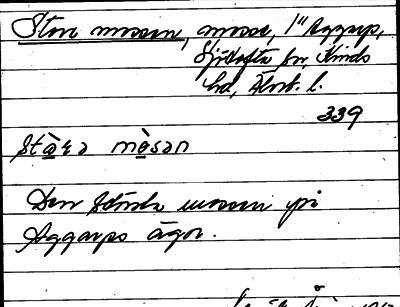 Stora mossen, mosse, 1" Aggarp,
Sjötofta sn, Kinds
hd, Älvsb. l.
339
stɷ̀ra mɷ̀san
Den största mossen på
Aggarps ägor.